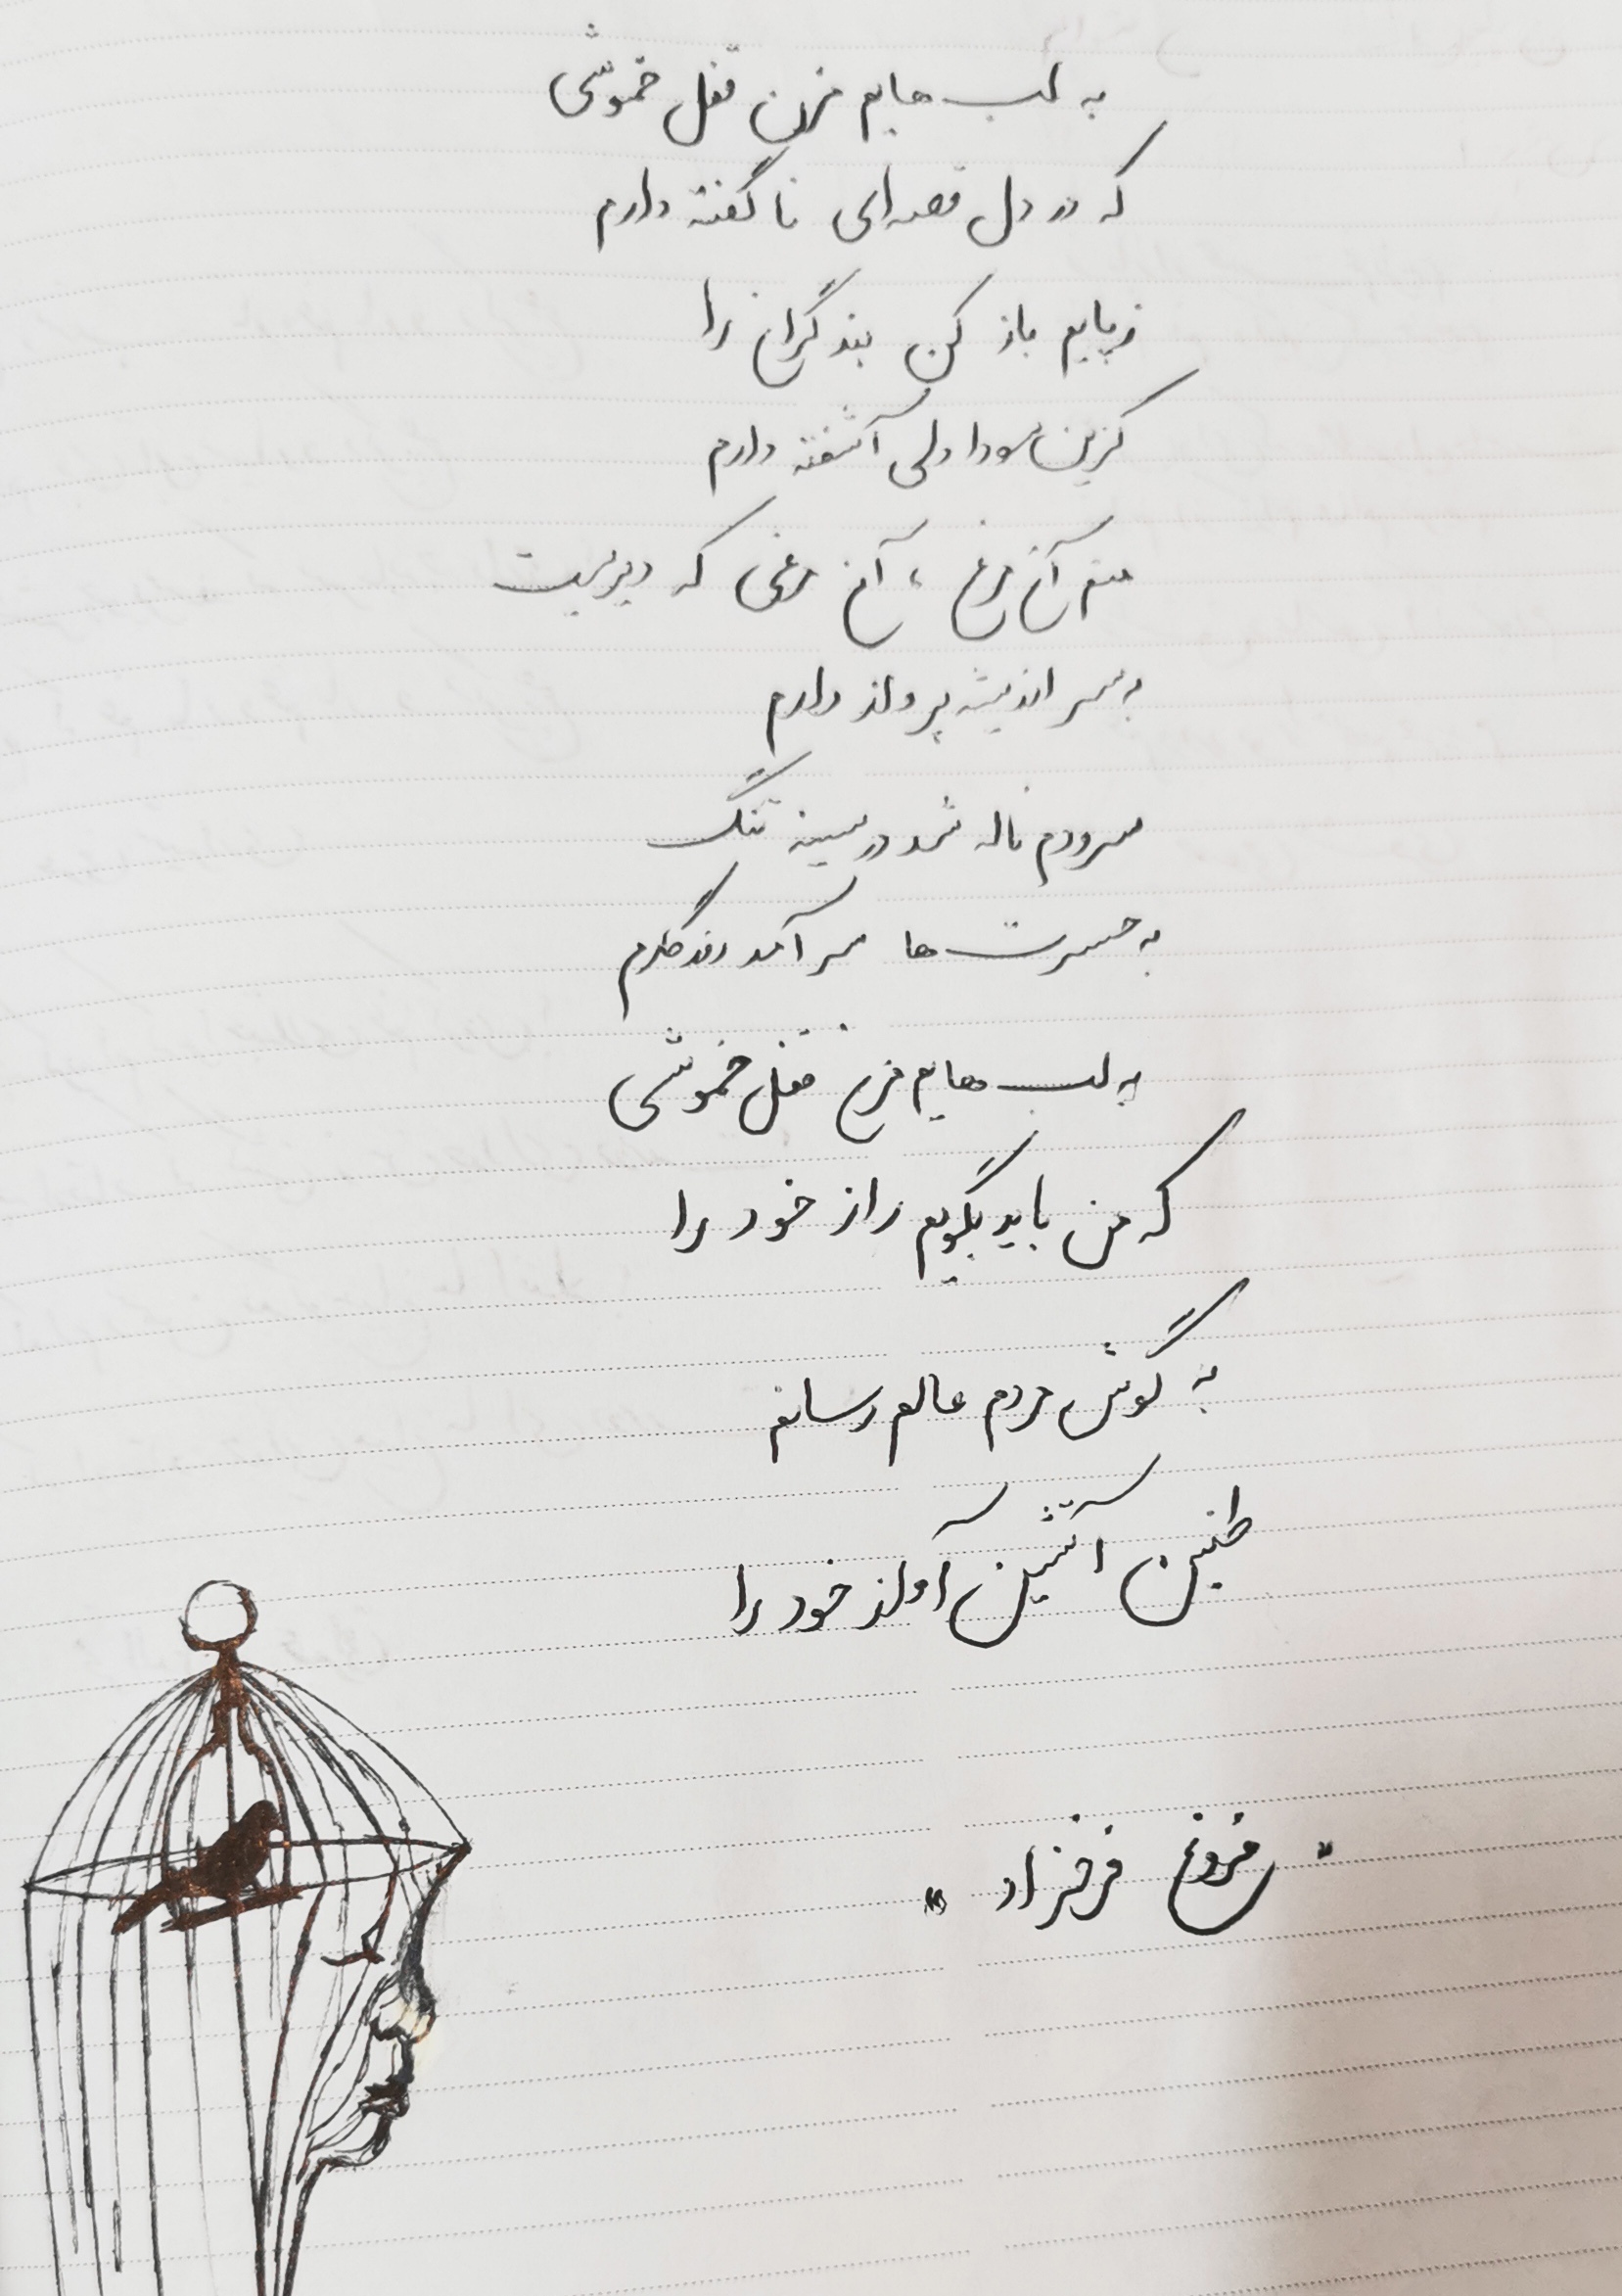 به لب هایم مزن قفل خموشی
که در دل قصه ای ناگفته دارم
ز پایم باز کن بند گران را
کزین سودا دلی آشفته دارم
منم آن مرغ ، آن مرغی که دیریست
به سر اندیشه پرواز دارم
سرودم ناله شد در سینه تنگ
به حسرت ها سر آمد روزگارم
به لب هایم مزن قفل خموشی
که من باید بگویم راز خود را
به گوش مردم عالم رسانم
طنین آتشین آواز خود را
" فروغ فرخزاد "